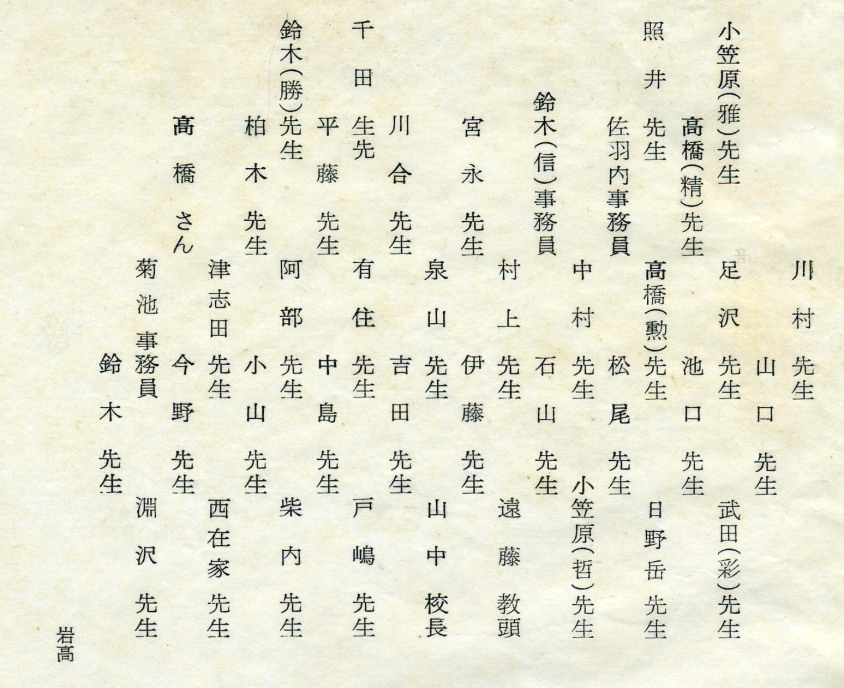 川村先生
山口先生
小笠原(雅)先生
足沢先生
武田(彩)先生
高橋(精)先生
池口先生
照井先生
高橋(勲)先生
日野岳先生
佐羽内事務員
松尾先生
中村先生
小笠原(哲)先生
鈴木(信)事務員
石山先生
村上先生
遠藤教頭
宮永先生
伊藤先生
泉山先生
山中校長
川合先生
吉田先生
千田生先
有住先生
戸嶋先生
平藤先生
中島先生
鈴木(勝)先生
阿部先生
柴内先生
柏木先生
小山先生
津志田先生
西在家先生
高橋さん
今野先生
菊池事務員
淵沢先生
鈴木先生
岩高